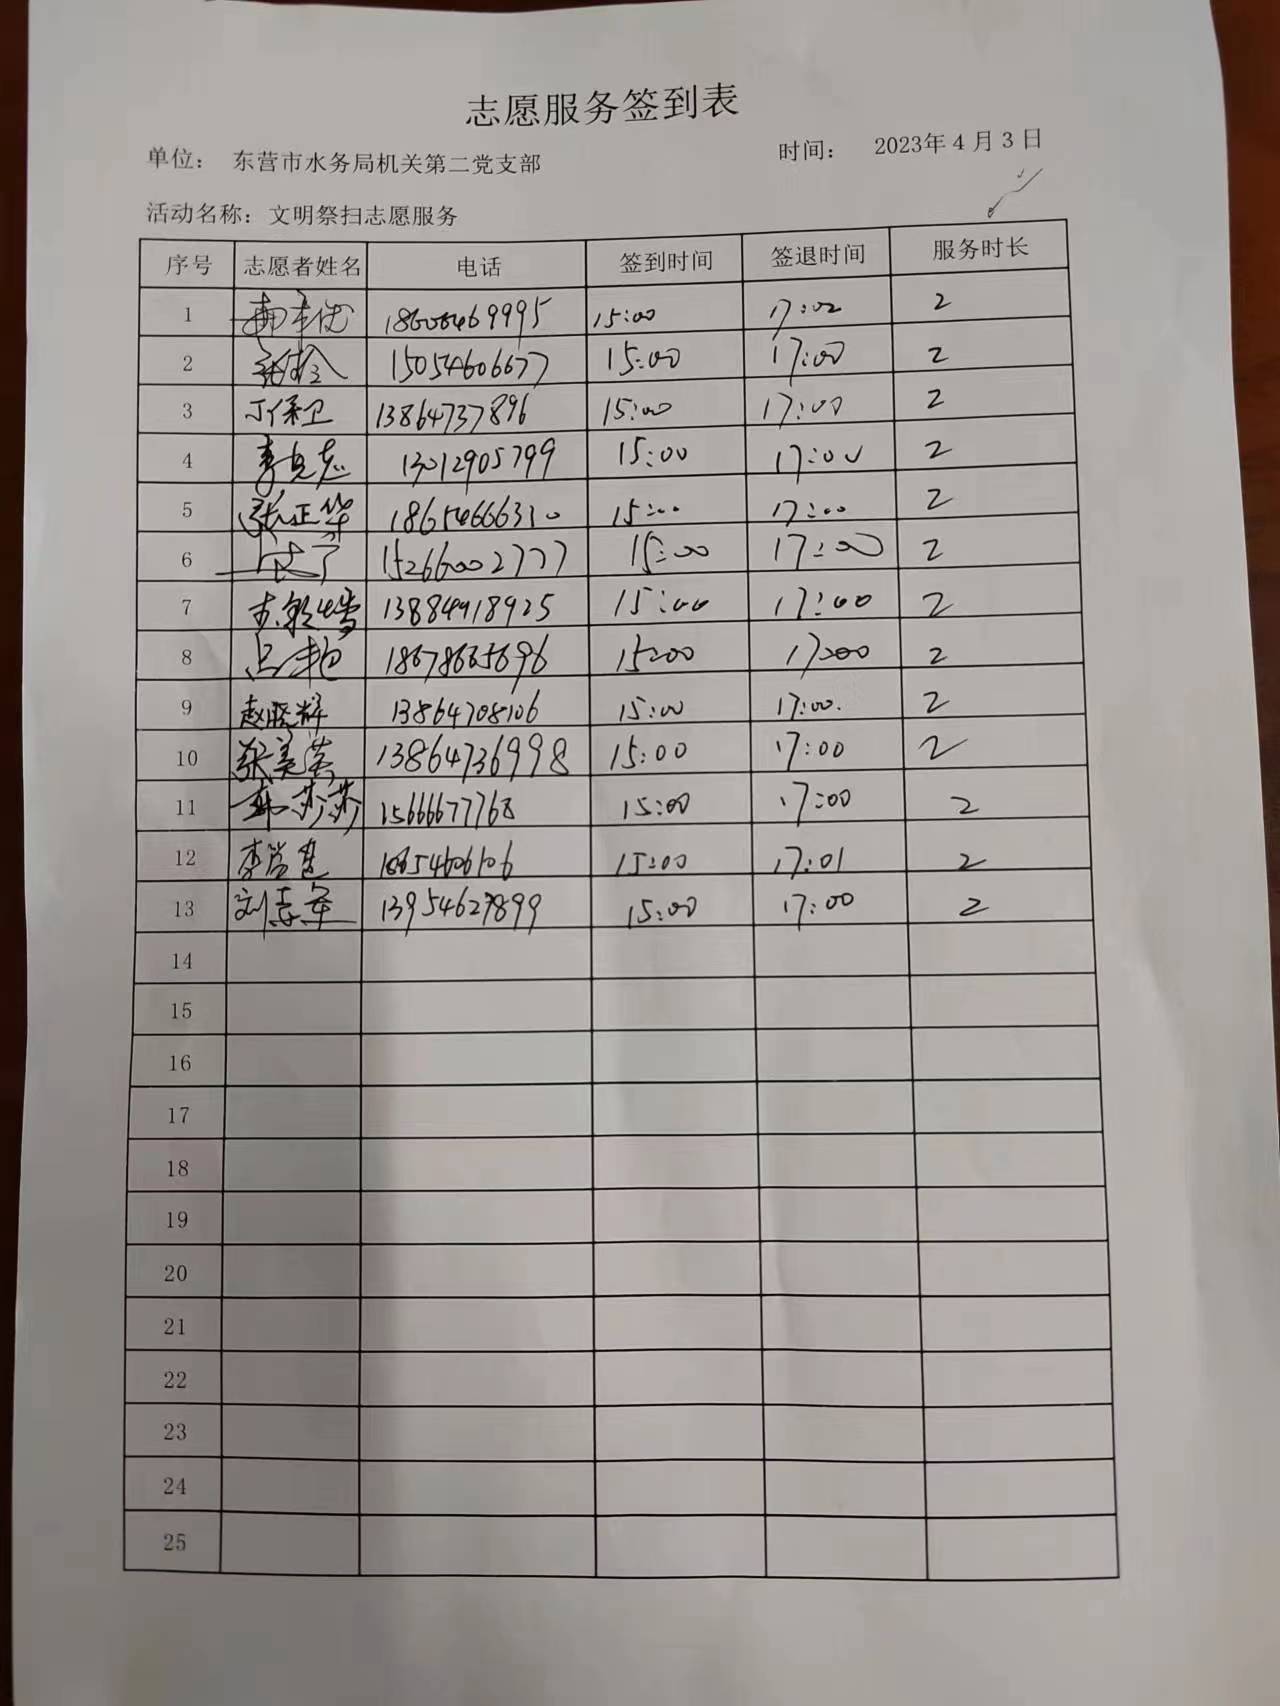 志愿服务签到表
单位： 东营市水务局机关第二党支部 时间： 2023年4月3日
活动名称：文明祭扫志愿服务
序号 志愿者姓名 电话 签到时间 签退时间 服务时长
1 15:00 17:02 2
2 15054606677 15:00 17:00 2
3 丁保卫 13864737896 15:00 17:00 2
4 13012905799 15:00 17:00 2
5 张正华 18654666310 15:00 17:00 2
6 15266002777 15:00 17:00 2
7 13884918925 15:00 17:00 2
8 15:00 17:00 2
9 赵晓辉 13864708106 15:00 17:00. 2
10 张美英 13864736998 15:00 17:00 2
11 韩莎莎 15666677768 15:00 17:00 2
12 15:00 17:01 2
13 刘志军 13954627899 15:00 17:00 2
14
15
16
17
18
19
20
21
22
23
24
25